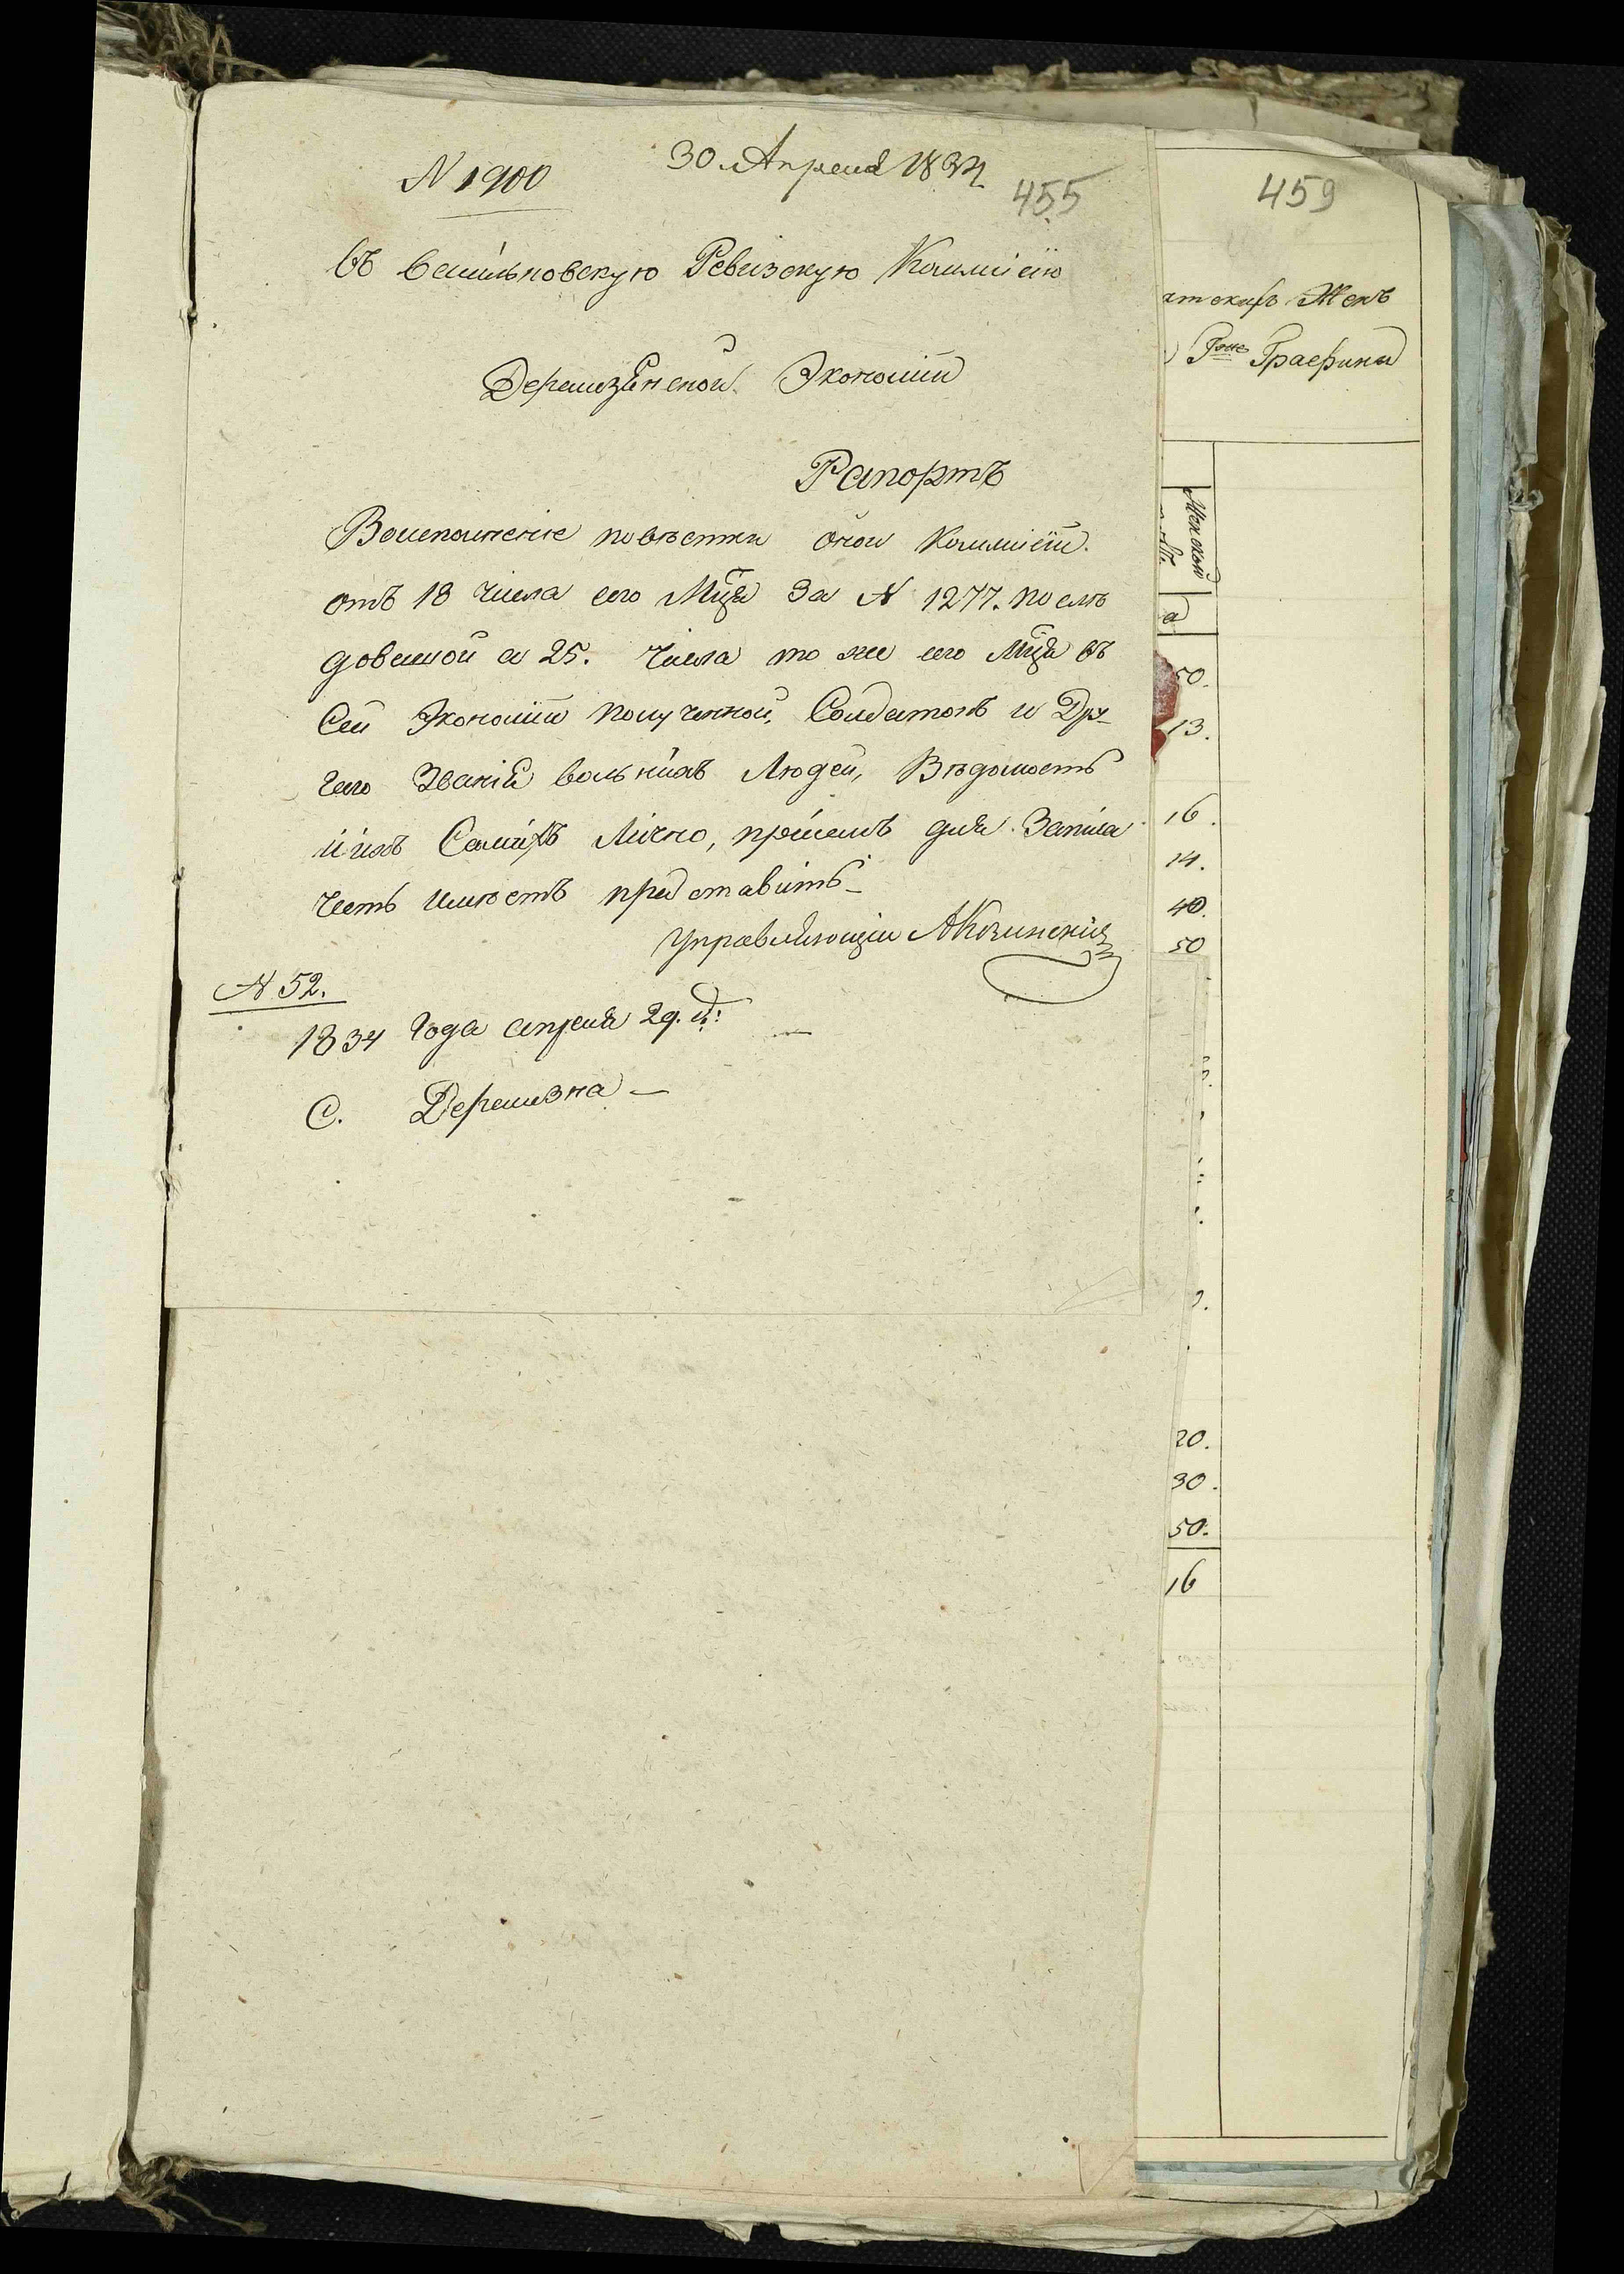 N 1900
30 Апреля 1834
455
въ Васильковскую Ревизскую Коммисію
Деремезянской Экономіи
Рапортъ
Восполненіе повѣстки оной Коммисіи.
отъ 18 числа сего Мц҃я За N 1277. послѣ
довавшой а 25. Числа то же сего Мц҃я въ
Сей Экономіи полученной, Солдатовъ и Дру-
гаго Званія вольніхъ Людей, Вѣдомость
и ихъ Саміхъ Лично, при семъ для Запіса
Честь имѣетъ представить-
Управляющій А Козинскій
N 52.
1834 Года апреля 29. д:
С. Деремезна -
459
Женъ
Графини
Женской
50.
13.
16.
14.
40.
50
20.
30.
50.
16